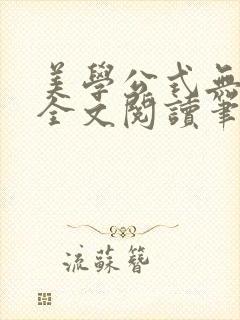 美學公式無
全文閱讀筆
流蘇簪